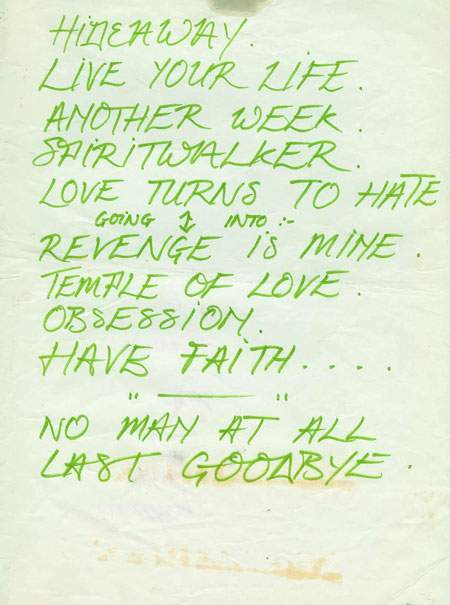 HIDEAWAY.
LIVE YOUR LIFE.
ANOTHER WEEK.
SPIRITWALKER.
LOVE TURNS TO HATE
GOING ↕ INTO :-
REVENGE IS MINE.
TEMPLE OF LOVE.
OBSESSION.
HAVE FAITH.....
" ——— "
NO MAN AT ALL
LAST GOODBYE.